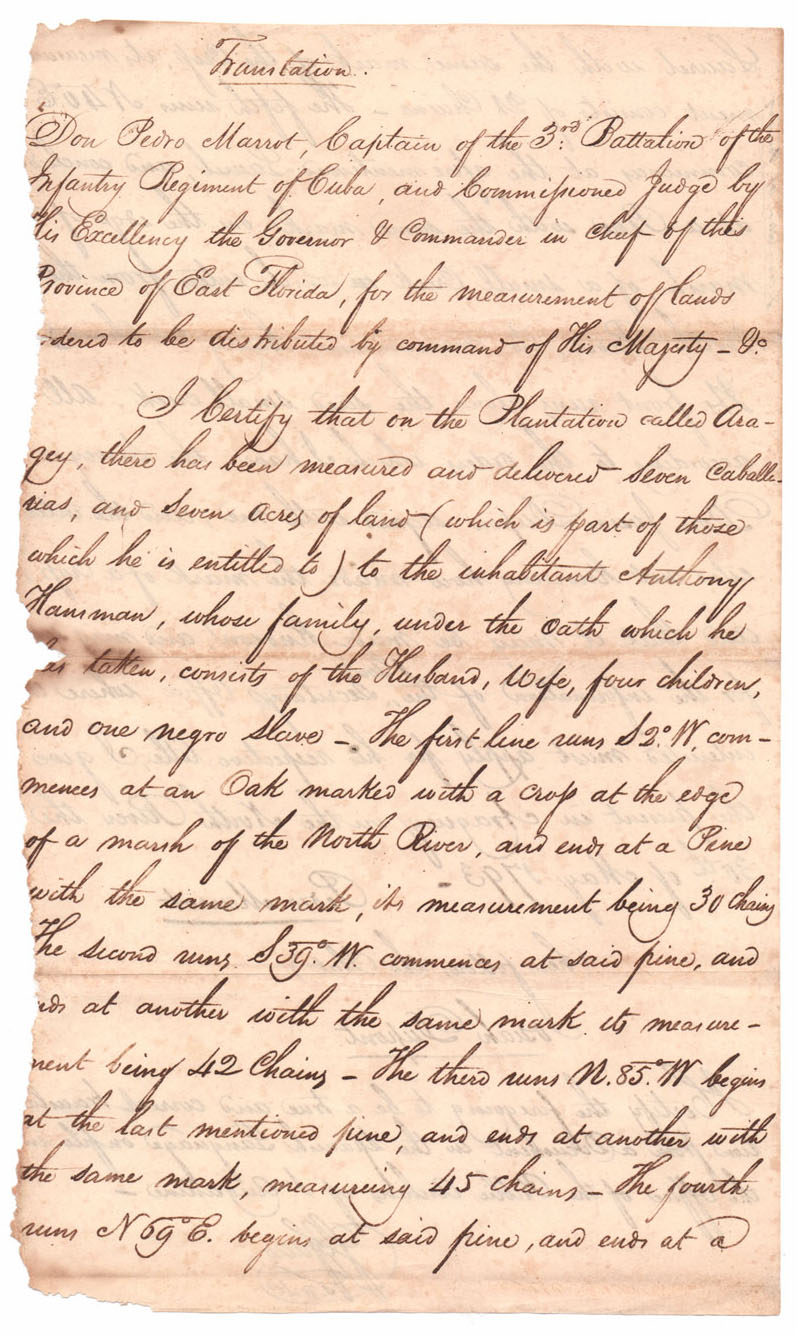 Translation.
Don Pedro Marrot, Captain of the 3rd. Battalion of the
Infantry Regiment of Cuba, and Commissioned Judge by
His Excellency the Governor & Commander in cheif of this
Province of East Florida, for the measurement of lands
rdered to be distributed by command of His Majesty - &c
I Certify that on the Plantation called Ara-
gey, there has been measured and delivered Seven Caballe-
rias, and Seven Acres of land (which is part of those
which he is entitled to) to the inhabitant Anthony
Hansman, whose family, under the oath which he
has taken, consists of the Husband, Wife, four children,
and one negro Slave - The first line runs S 2° W. com-
mences at an Oak marked with a cross at the edge
of a marsh of the North River, and ends at a Pine
with the same mark, its measurement being 30 Chains
The second runs S 39° W. commences at said pine, and
nds at another with the same mark its measure-
ment being 42 Chains - The third runs N. 85° W begins
at the last mentioned pine, and ends at another with
the same mark, measureing 45 Chains - The fourth
runs N 69° E. begins at said pine, and ends at a